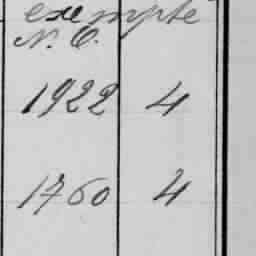 exempte
N. O.
1922 4
1760 4